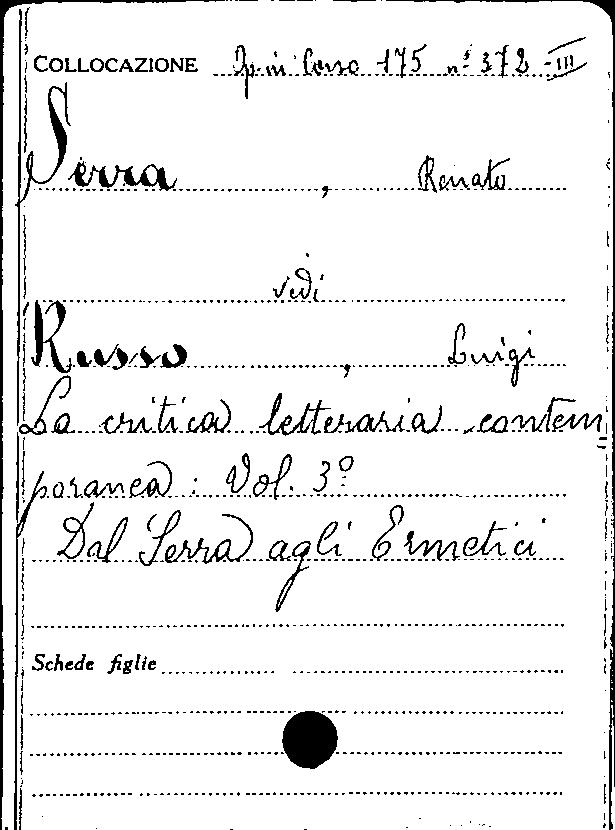 COLLOCAZIONE Op. in Corso 175 n.° 372 -III
Serra, Renato
vedi
Russo, Luigi
La critica letteraria contem=
poranea : Vol. 3°
Dal Serra agli Ermetici
Schede figlie